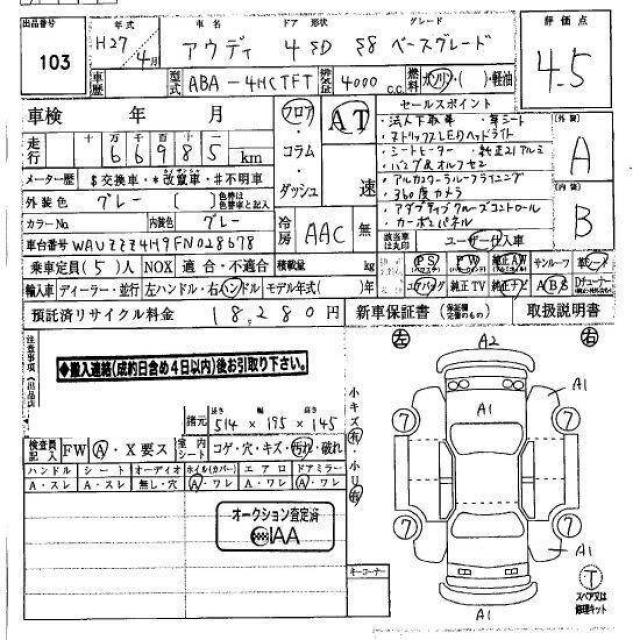 出品番号 年式 車名 ドア 形状 グレード 評価点
103 H27 4月 アウディ 4 SD S8 ベースグレード 4.5
車歴 型式 ABA-4HCTFT 排気量 4000 C.C. 燃料 ガソリン・( )・軽油
車検 年 月 フロア AT セールスポイント [外装]
・コラム ・法人下取車 ・革シート A
走行 十 万 千 百 十 ・マトリックスLEDヘッドライト
6 6 9 8 5 km ・シートヒーター ・純正21アルミ
メーター歴 $交換車・*改竄車・#不明車 ・ダッシュ 速 [内装]
外装色 グレー ( 色替は色替車と記入 ) ・アルカンターラルーフライニング B
・360度カメラ
カラーNo. 内装色 グレー 冷房 AAC 無 ・アダプティブクルーズコントロール
・カーボンパネル
車台番号 WAUZZZ4H9FN028678 該当車は丸印 ユーザー仕入車
乗車定員(5)人 NOX 適合・不適合 積載量 kg PS PW 純正AW サンルーフ 革シート
輸入車 ディーラー・並行 左ハンドル・右ハンドル モデル年式( )年 エアバッグ 純正TV 純正ナビ ABS Dチューナー
預託済リサイクル料金 18,280円 新車保証書 取扱説明書
注意事項(出品店) 左 A2 右
◆搬入連絡(成約日含め4日以内)後お引取り下さい。 A1
A1
小キズ有・小U有
諸元 長さ 幅 高さ
514×195×145 7 7
検査員記入 FW A・X要ス 室内シート コゲ・穴・キズ・汚れ・破れ
ハンドル シート オーディオ ホイル(カバー) エアロ ドアミラー
A・スレ A・スレ 無し・穴 A・ワレ A・ワレ A・ワレ
オークション査定済 7 7
IAA A1
キーコーナー T
スペア又は修理キット
A1